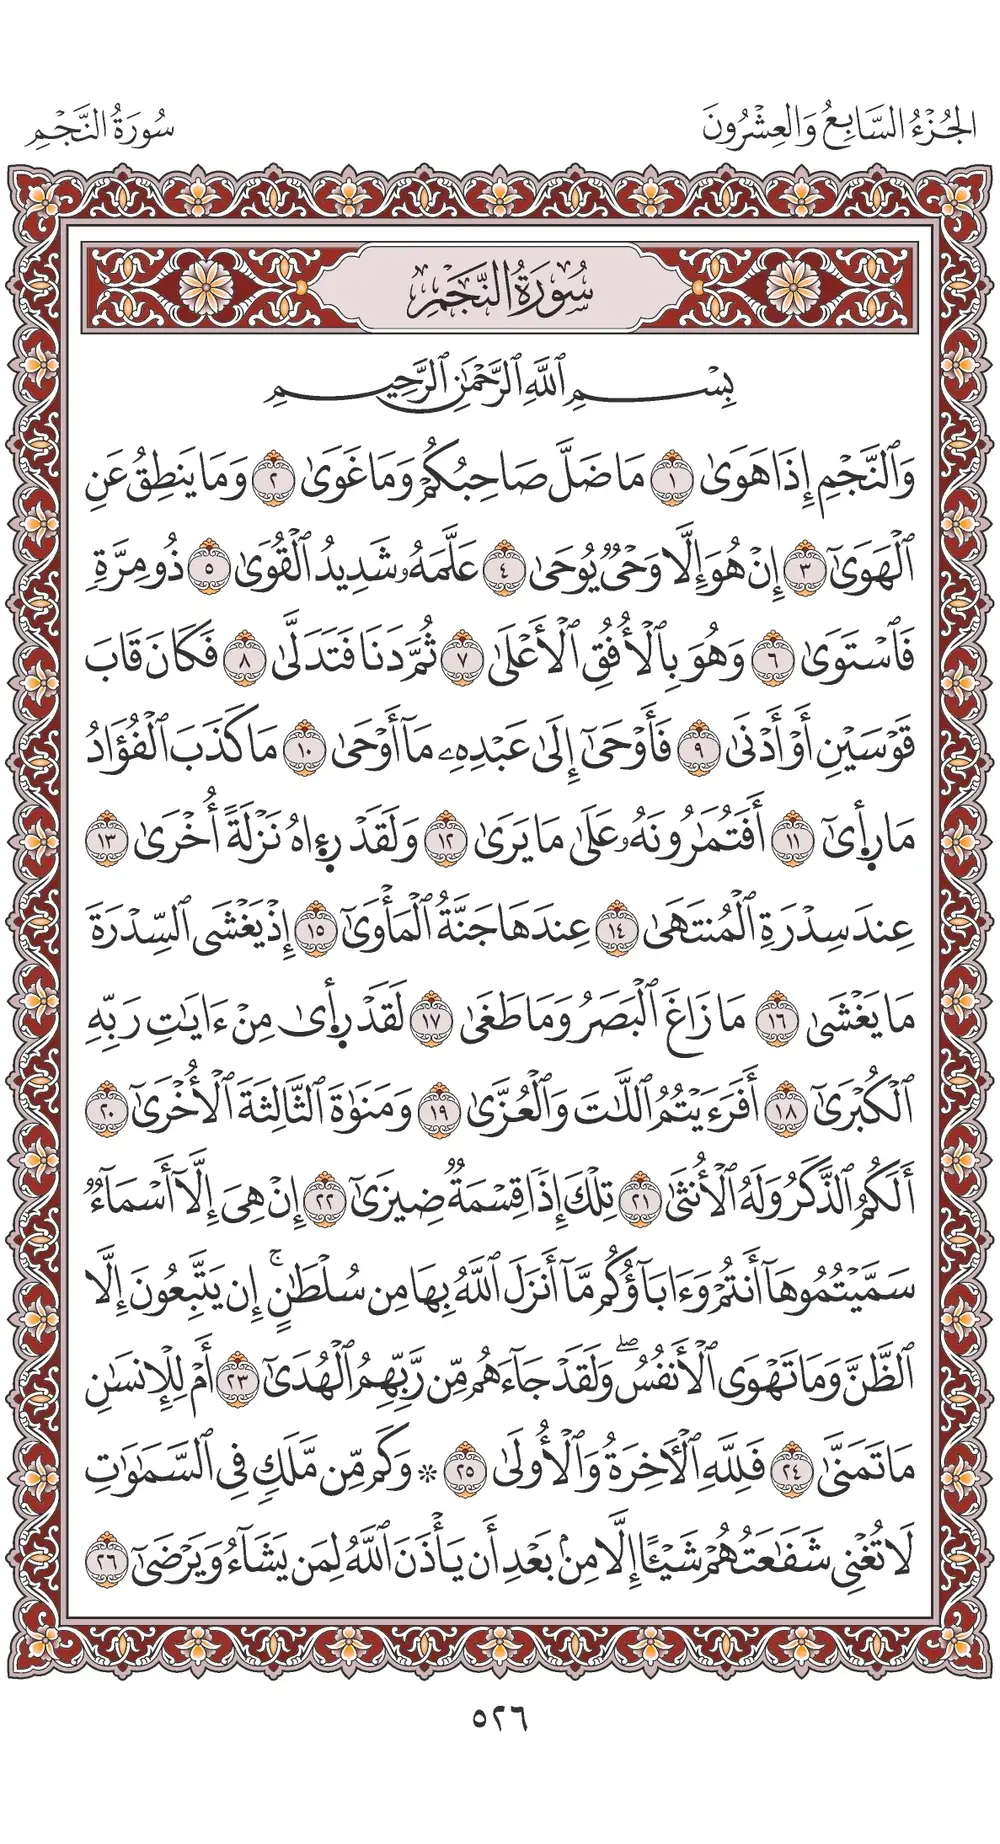 الجُزْءُ السَّابِعُ وَالعِشْرُونَ
سُورَةُ النَّجْمِ
سُورَةُ النَّجْمِ
بِسْمِ ٱللَّهِ ٱلرَّحْمَٰنِ ٱلرَّحِيمِ
وَٱلنَّجْمِ إِذَا هَوَىٰ ١ مَا ضَلَّ صَاحِبُكُمْ وَمَا غَوَىٰ ٢ وَمَا يَنطِقُ عَنِ
ٱلْهَوَىٰٓ ٣ إِنْ هُوَ إِلَّا وَحْىٌ يُوحَىٰ ٤ عَلَّمَهُۥ شَدِيدُ ٱلْقُوَىٰ ٥ ذُو مِرَّةٍ
فَٱسْتَوَىٰ ٦ وَهُوَ بِٱلْأُفُقِ ٱلْأَعْلَىٰ ٧ ثُمَّ دَنَا فَتَدَلَّىٰ ٨ فَكَانَ قَابَ
قَوْسَيْنِ أَوْ أَدْنَىٰ ٩ فَأَوْحَىٰٓ إِلَىٰ عَبْدِهِۦ مَآ أَوْحَىٰ ١٠ مَا كَذَبَ ٱلْفُؤَادُ
مَا رَأَىٰٓ ١١ أَفَتُمَٰرُونَهُۥ عَلَىٰ مَا يَرَىٰ ١٢ وَلَقَدْ رَءَاهُ نَزْلَةً أُخْرَىٰ ١٣
عِندَ سِدْرَةِ ٱلْمُنتَهَىٰ ١٤ عِندَهَا جَنَّةُ ٱلْمَأْوَىٰٓ ١٥ إِذْ يَغْشَى ٱلسِّدْرَةَ
مَا يَغْشَىٰ ١٦ مَا زَاغَ ٱلْبَصَرُ وَمَا طَغَىٰ ١٧ لَقَدْ رَأَىٰ مِنْ ءَايَٰتِ رَبِّهِ
ٱلْكُبْرَىٰٓ ١٨ أَفَرَءَيْتُمُ ٱللَّٰتَ وَٱلْعُزَّىٰ ١٩ وَمَنَوٰةَ ٱلثَّالِثَةَ ٱلْأُخْرَىٰٓ ٢٠
أَلَكُمُ ٱلذَّكَرُ وَلَهُ ٱلْأُنثَىٰ ٢١ تِلْكَ إِذًا قِسْمَةٌ ضِيزَىٰٓ ٢٢ إِنْ هِىَ إِلَّآ أَسْمَآءٌ
سَمَّيْتُمُوهَآ أَنتُمْ وَءَابَآؤُكُم مَّآ أَنزَلَ ٱللَّهُ بِهَا مِن سُلْطَٰنٍۚ إِن يَتَّبِعُونَ إِلَّا
ٱلظَّنَّ وَمَا تَهْوَى ٱلْأَنفُسُۖ وَلَقَدْ جَآءَهُم مِّن رَّبِّهِمُ ٱلْهُدَىٰٓ ٢٣ أَمْ لِلْإِنسَٰنِ
مَا تَمَنَّىٰ ٢٤ فَلِلَّهِ ٱلْأٓخِرَةُ وَٱلْأُولَىٰ ٢٥ * وَكَم مِّن مَّلَكٍ فِى ٱلسَّمَٰوَٰتِ
لَا تُغْنِى شَفَٰعَتُهُمْ شَيْـًٔا إِلَّا مِنۢ بَعْدِ أَن يَأْذَنَ ٱللَّهُ لِمَن يَشَآءُ وَيَرْضَىٰٓ ٢٦
٥٢٦